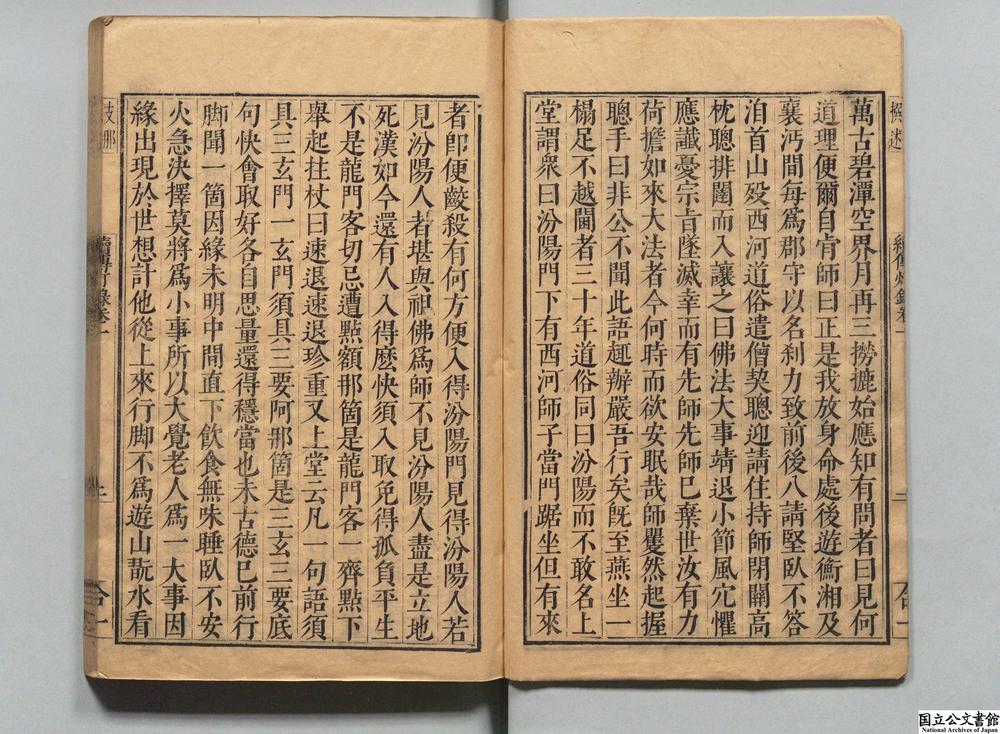 萬古碧潭空界月再三撈摝始應知有問者曰見何
道理便爾自肯師曰正是我放身命處後遊衡湘及
襄沔間每為郡守以名刹力致前後八請堅臥不答
洎首山歿西河道俗遣僧契聰迎請住持師閉關高
枕聰排闥而入讓之曰佛法大事靖退小節風穴懼
應讖憂宗旨墜滅幸而有先師先師已棄世汝有力
荷擔如來大法者今何時而欲安眠哉師矍然起握
聰手曰非公不聞此語趣辦嚴吾行矣旣至燕坐一
榻足不越閫者三十年道俗同曰汾陽而不敢名上
堂謂衆曰汾陽門下有西河師子當門踞坐但有來
者卽便齩殺有何方便入得汾陽門見得汾陽人若
見汾陽人者堪與祖佛爲師不見汾陽人盡是立地
死漢如今還有人入得麽快須入取免得孤負平生
不是龍門客切忌遭點額那箇是龍門客一齊點下
舉起拄杖曰速退速退珍重又上堂云凡一句語須
具三玄門一玄門須具三要阿那箇是三玄三要底
句快會取好各自思量還得穩當也未古德已前行
脚聞一箇因緣未明中間直下飲食無味睡臥不安
火急決擇莫將爲小事所以大覺老人爲一大事因
緣出現於世想計他從上來行脚不爲遊山翫水看
国立公文書館
National Archives of Japan